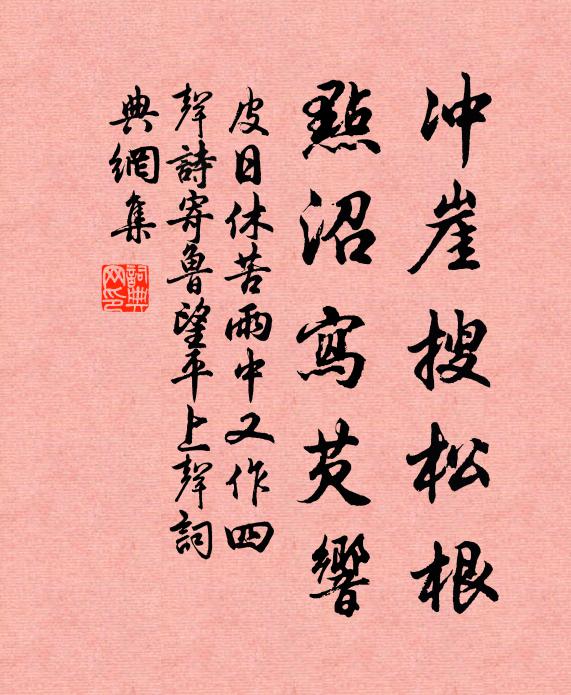 冲崖搜松根
點沼寫芡響
皮日休苦雨中又作四
聲詩寄魯望平上聲詞
典網集
詞典网印